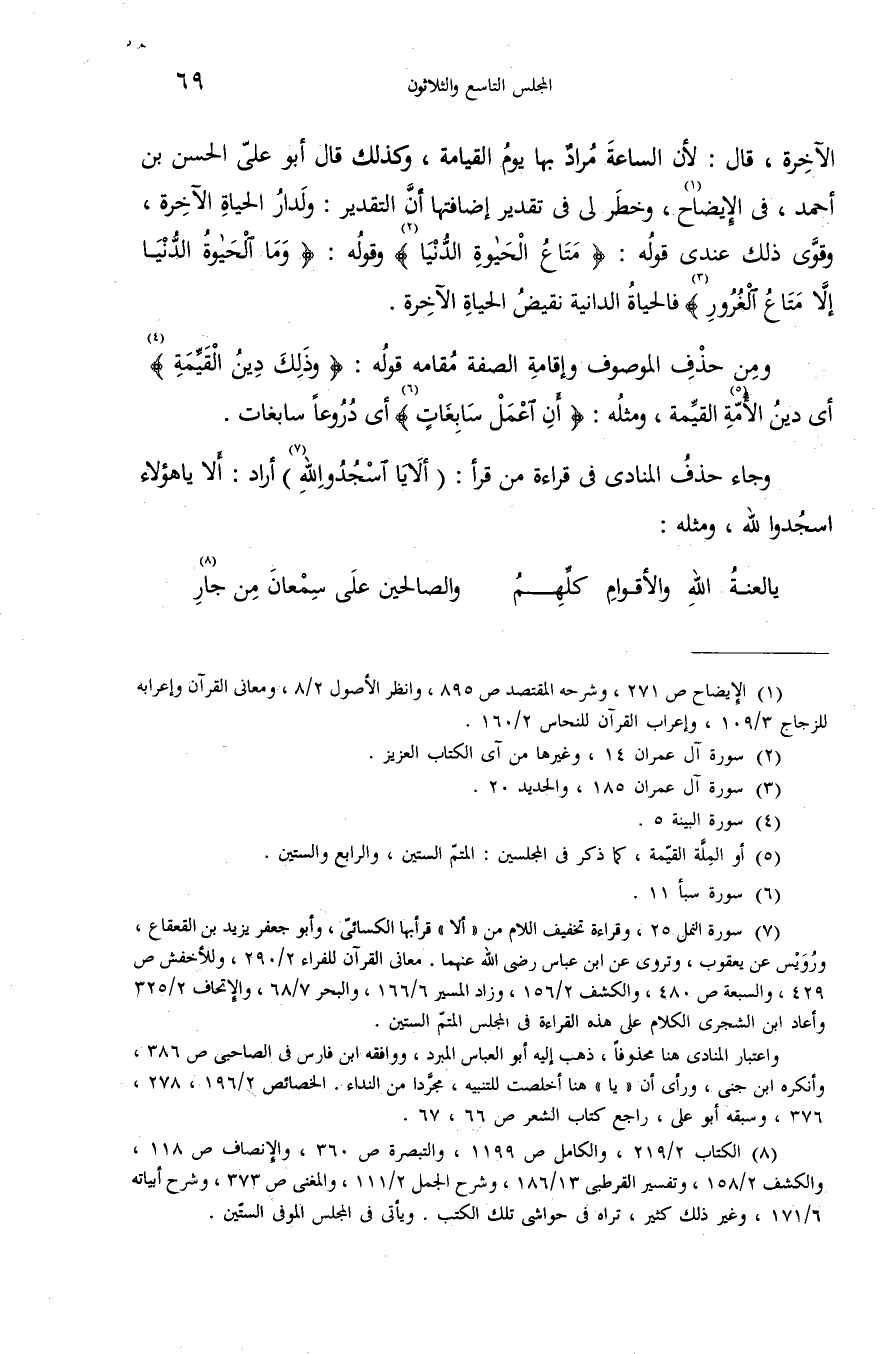 المجلس التاسع والثلاثون ٦٩
الآخِرة ، قال : لأن الساعةَ مُرادٌ بها يومُ القيامة ، وكذلك قال أبو علىّ الحسن بن
أحمد ، فى الإِيضاح(١) ، وخطَر لى فى تقدير إضافتها أنَّ التقدير : ولَدارُ الحياةِ الآخِرة ،
وقوَّى ذلك عندى قولُه : ﴿ مَتَاعُ الْحَيٰوةِ الدُّنْيَا ﴾(٢) وقولُه : ﴿ وَمَا ٱلْحَيٰوةُ الدُّنْيَـا
إلَّا مَتَاعُ ٱلْغُرُورِ ﴾(٣) فالحياةُ الدانية نقيضُ الحياةِ الآخرة .
ومِن حذْفِ الموصوف وإقامةِ الصفة مُقامه قولُه : ﴿ وذَٰلِكَ دِينُ الْقَيِّمَةِ ﴾(٤)
أى دينُ الأُمّةِ(٥) القيِّمة ، ومثلُه : ﴿ أَنِ ٱعْمَلْ سَابِغَاتٍ ﴾(٦) أى دُرُوعاً سابغات .
وجاء حذفُ المنادى فى قراءة من قرأ : ( أَلَايَا ٱسْجُدُوالِلهِ(٧) ) أراد : أَلا ياهؤلاء
اسجُدوا لله ، ومثله :
يالعنـةُ اللهِ والأقـوامِ كلِّهِـــمُ والصالحين علَى سِمْعانَ مِن جارِ(٨)
(١) الإيضاح ص ٢٧١ ، وشرحه المقتصد ص ٨٩٥ ، وانظر الأصول ٨/٢ ، ومعانى القرآن وإعرابه
للزجاج ١٠٩/٣ ، وإعراب القرآن للنحاس ١٦٠/٢ .
(٢) سورة آل عمران ١٤ ، وغيرها من آى الكتاب العزيز .
(٣) سورة آل عمران ١٨٥ ، والحديد ٢٠ .
(٤) سورة البينة ٥ .
(٥) أو المِلَّة القيّمة ، كما ذكر فى المجلسين : المتمّ الستين ، والرابع والستين .
(٦) سورة سبأ ١١ .
(٧) سورة النمل ٢٥ ، وقراءة تخفيف اللام من « ألا » قرأبها الكسائىّ ، وأبو جعفر يزيد بن القعقاع ،
ورُوَيْس عن يعقوب ، وتروى عن ابن عباس رضى الله عنهما . معانى القرآن للفراء ٢٩٠/٢ ، وللأخفش ص
٤٢٩ ، والسبعة ص ٤٨٠ ، والكشف ١٥٦/٢ ، وزاد المسير ١٦٦/٦ ، والبحر ٦٨/٧ ، والإتحاف ٣٢٥/٢
وأعاد ابن الشجرى الكلام على هذه القراءة فى المجلس المتمّ الستين .
واعتبار المنادى هنا محذوفاً ، ذهب إليه أبو العباس المبرد ، ووافقه ابن فارس فى الصاحبى ص ٣٨٦ ،
وأنكره ابن جنى ، ورأى أن « يا » هنا أخلصت للتنبيه ، مجرَّدا من النداء . الخصائص ١٩٦/٢ ، ٢٧٨ ،
٣٧٦ ، وسبقه أبو على ، راجع كتاب الشعر ص ٦٦ ، ٦٧ .
(٨) الكتاب ٢١٩/٢ ، والكامل ص ١١٩٩ ، والتبصرة ص ٣٦٠ ، والإنصاف ص ١١٨ ،
والكشف ١٥٨/٢ ، وتفسير القرطبى ١٨٦/١٣ ، وشرح الجمل ١١١/٢ ، والمغنى ص ٣٧٣ ، وشرح أبياته
١٧١/٦ ، وغير ذلك كثير ، تراه فى حواشى تلك الكتب . ويأتى فى المجلس الموفى الستّين .